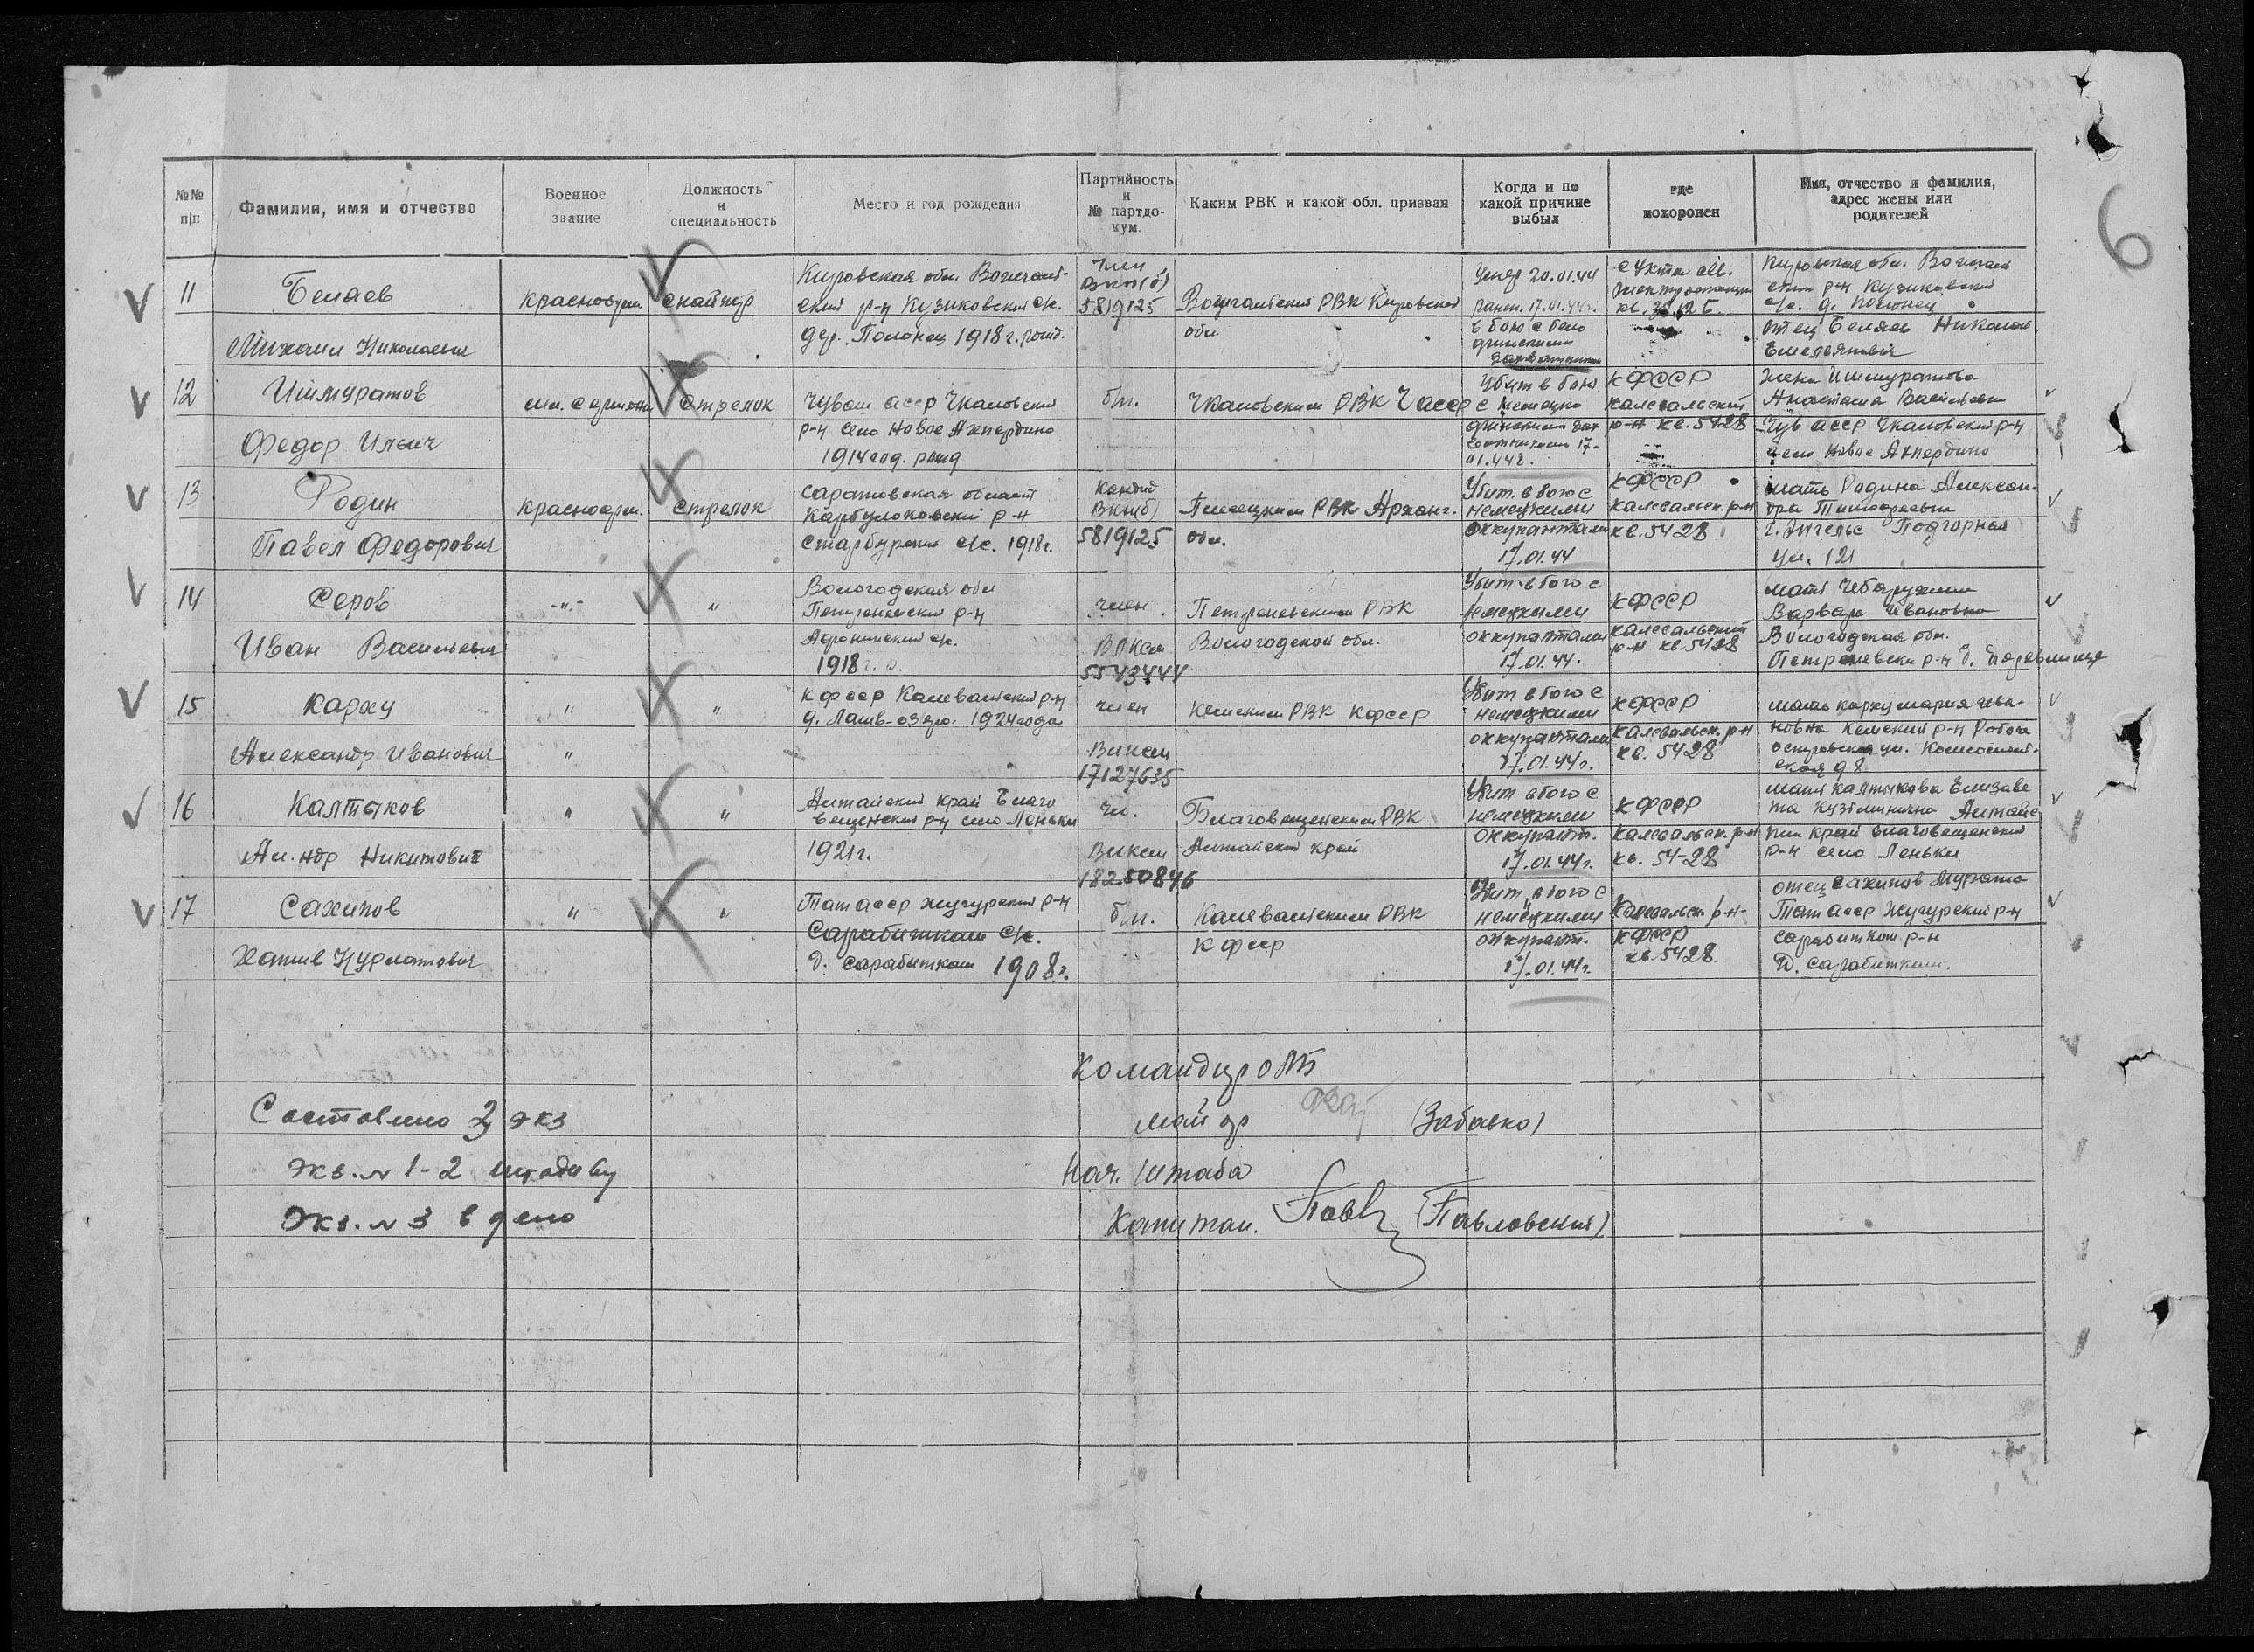 6
№№ п/п
Фамилия, имя и отчество
Военное звание
Должность и специальность
Место и год рождения
Партийность и № партдокум.
Каким РВК и какой обл. призван
Когда и по какой причине выбыл
где похоронен
Имя, отчество и фамилия, адрес жены или родителей
11
Беляев
Михаил Николаевич
красноарм.
снайпер
Кировская обл. Вожгаль-
ский р-н Кузиковский с/с.
дер. Полонец 1918 г. рожд.
член
ВКП(б)
5819125
Вожгальский РВК Кировской
обл
Умер 20.01.44
ранен. 17.01.44г.
в бою с бело
финскими
захватчиками
Кировская обл. Вожгаль
ский р-н Кузиковский
с/с. д. Полонец
отец Беляев Николай
Емельянович
12
Ишмуратов
Федор Ильич
мл. сержант
Стрелок
Чуваш асср Чкаловский
р-н село Новое Ахпердино
1914 год. рожд
б/п.
Чкаловским РВК Часср
Убит в бою
с немецко
финскими зах
ватчиками 17-
01.44г.
КФССР
Калевальский
р-н кв. 5428
жена Ишмуратова
Анастасия Васильевна
Чув асср Чкаловский р-н
село Новое Ахпердино
13
Родин
Павел Федорович
красноарм.
стрелок
Саратовская област
Карбулокский р-н
с/с. 1918г.
Кандид
ВКП(б)
5819125
Плесецким РВК Арханг.
обл.
Убит в бою с
немецкими
оккупантами
17.01.44
КФССР
Калевальск. р-н
кв. 5428
мать Родина Алексан-
дра Тимофеевна
г. Энгельс Подгорная
ул. 121
14
Серов
Иван Васильевич
-"-
"
Вологодская обл
Петриневский р-н
с/с.
1918 г. р.
член
ВЛКСМ
5543444
Петриневским РВК
Вологодской обл.
Убит в бою с
немецкими
оккупантами
17.01.44.
КФССР
Калевальский
р-н кв. 5428
мать
Варвара Ивановна
Вологодская обл.
Петриневски р-н д.
15
Карху
Александр Иванович
"
"
"
КФССР Калевальский р-н
д. 1924 года
член
ВЛКСМ
17127635
Кемским РВК КФССР
Убит в бою с
немецкими
оккупантами
17.01.44г.
КФССР
Калевальск. р-н
кв. 5428
мать Карху мария Ива-
новна Кемский р-н Рабоче
островская ул. Комсомоль-
ская д 8
16
Калтыков
Ал-ндр Никитович
"
"
Алтайский край Благо
вещенский р-н село Леньки
1921г.
чл.
ВЛКСМ
18250846
Благовещенским РВК
Алтайский край
Убит в бою с
немецкими
оккупант.
17.01.44г.
КФССР
Калевальск. р-н
кв. 54-28
мать Калтыкова Елизаве
та Кузьминична Алтайс
кий край Благовещенский
р-н село Леньки
17
Сахипов
"
"
Тат асср р-н
Сарабиккам с/с.
д. Сарабиккам 1908г.
б/п.
Калевальским РВК
КФССР
Убит в бою с
немецкими
оккупант.
17.01.44г.
Калевальск. р-н-
КФССР
кв. 5428.
отец Сахипов
Тат асср р-н
р-н
д. Сарабиккам.
Командир ОЛБ
майор (Забавко)
Нач. Штаба
Капитан. (Павловский)
Составлено 3 экз
экз. № 1-2 штадиву
экз. № 3 в дело